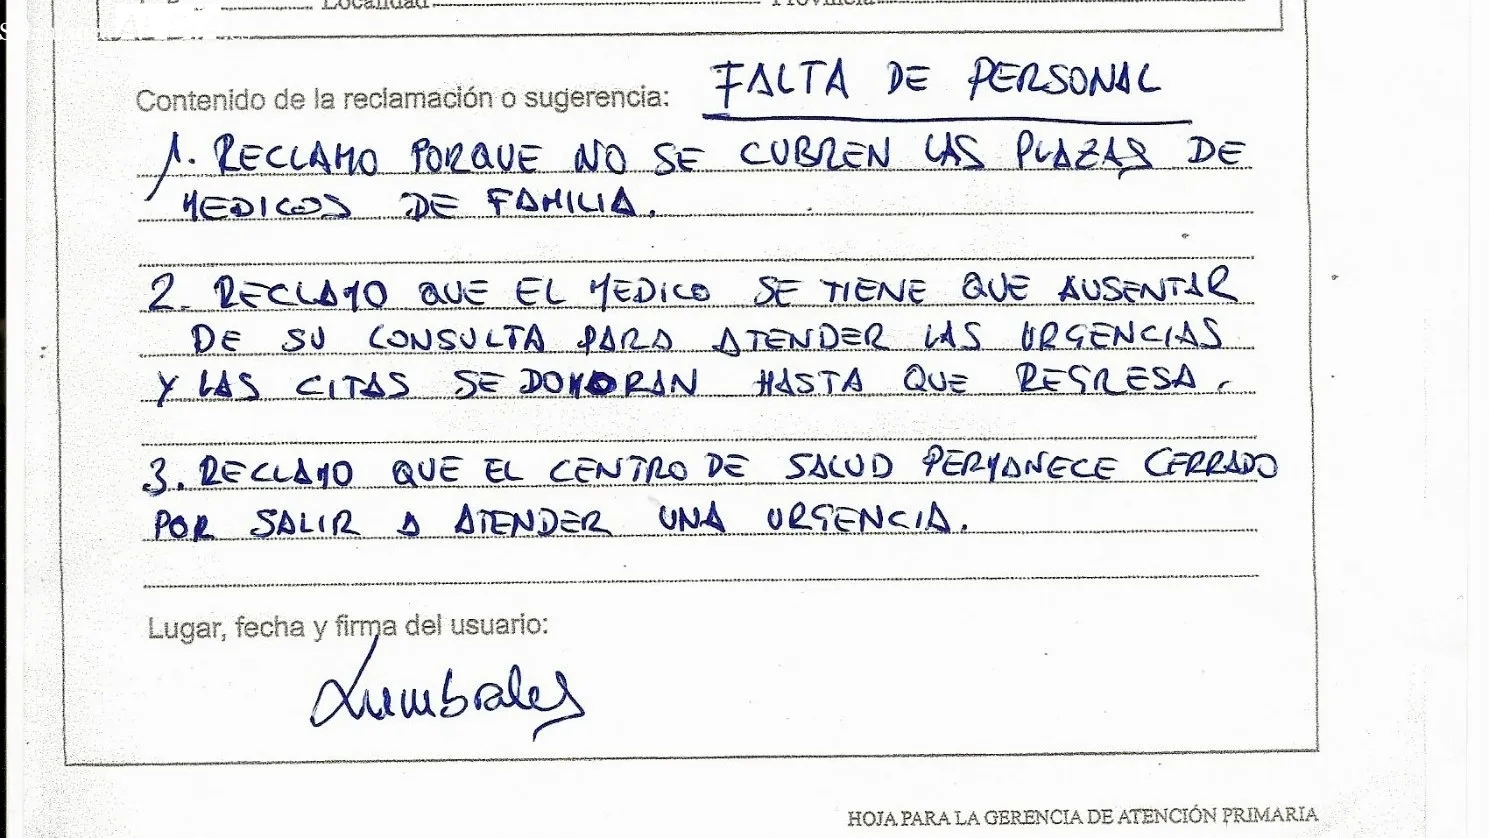 Localidad Provincia
Contenido de la reclamación o sugerencia: FALTA DE PERSONAL
1. RECLAMO PORQUE NO SE CUBREN LAS PLAZAS DE
MEDICOS DE FAMILIA.
2. RECLAMO QUE EL MEDICO SE TIENE QUE AUSENTAR
DE SU CONSULTA PARA ATENDER LAS URGENCIAS
Y LAS CITAS SE DOMORAN HASTA QUE REGRESA.
3. RECLAMO QUE EL CENTRO DE SALUD PERMANECE CERRADO
POR SALIR A ATENDER UNA URGENCIA.
Lugar, fecha y firma del usuario:
Lumbrales
HOJA PARA LA GERENCIA DE ATENCIÓN PRIMARIA